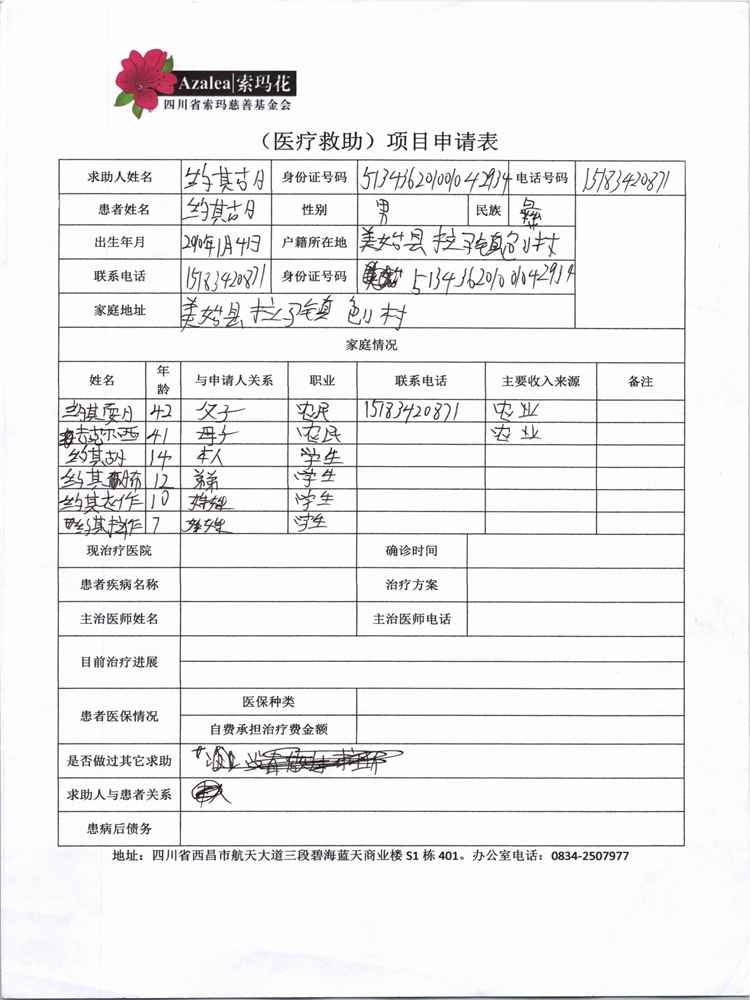 Azalea|索玛花
四川省索玛慈善基金会
（医疗救助）项目申请表
求助人姓名 约其古月 身份证号码 513436201001042934 电话号码 15183420871
患者姓名 约其古月 性别 男 民族 彝
出生年月 户籍所在地 美姑县
联系电话 15183420871 身份证号码 513436201001042934
家庭地址 美姑县 村
家庭情况
姓名 年龄 与申请人关系 职业 联系电话 主要收入来源 备注
42 父子 农民 15183420871 农业
41 母子 农民 农业
约其 14 本人 学生
约其 12 弟弟 学生
约其 作 10 学生
约其拉作 7 学生
现治疗医院 确诊时间
患者疾病名称 治疗方案
主治医师姓名 主治医师电话
目前治疗进展
患者医保情况 医保种类
自费承担治疗费金额
是否做过其它求助
求助人与患者关系
患病后债务
地址：四川省西昌市航天大道三段碧海蓝天商业楼 S1 栋 401。办公室电话：0834-2507977